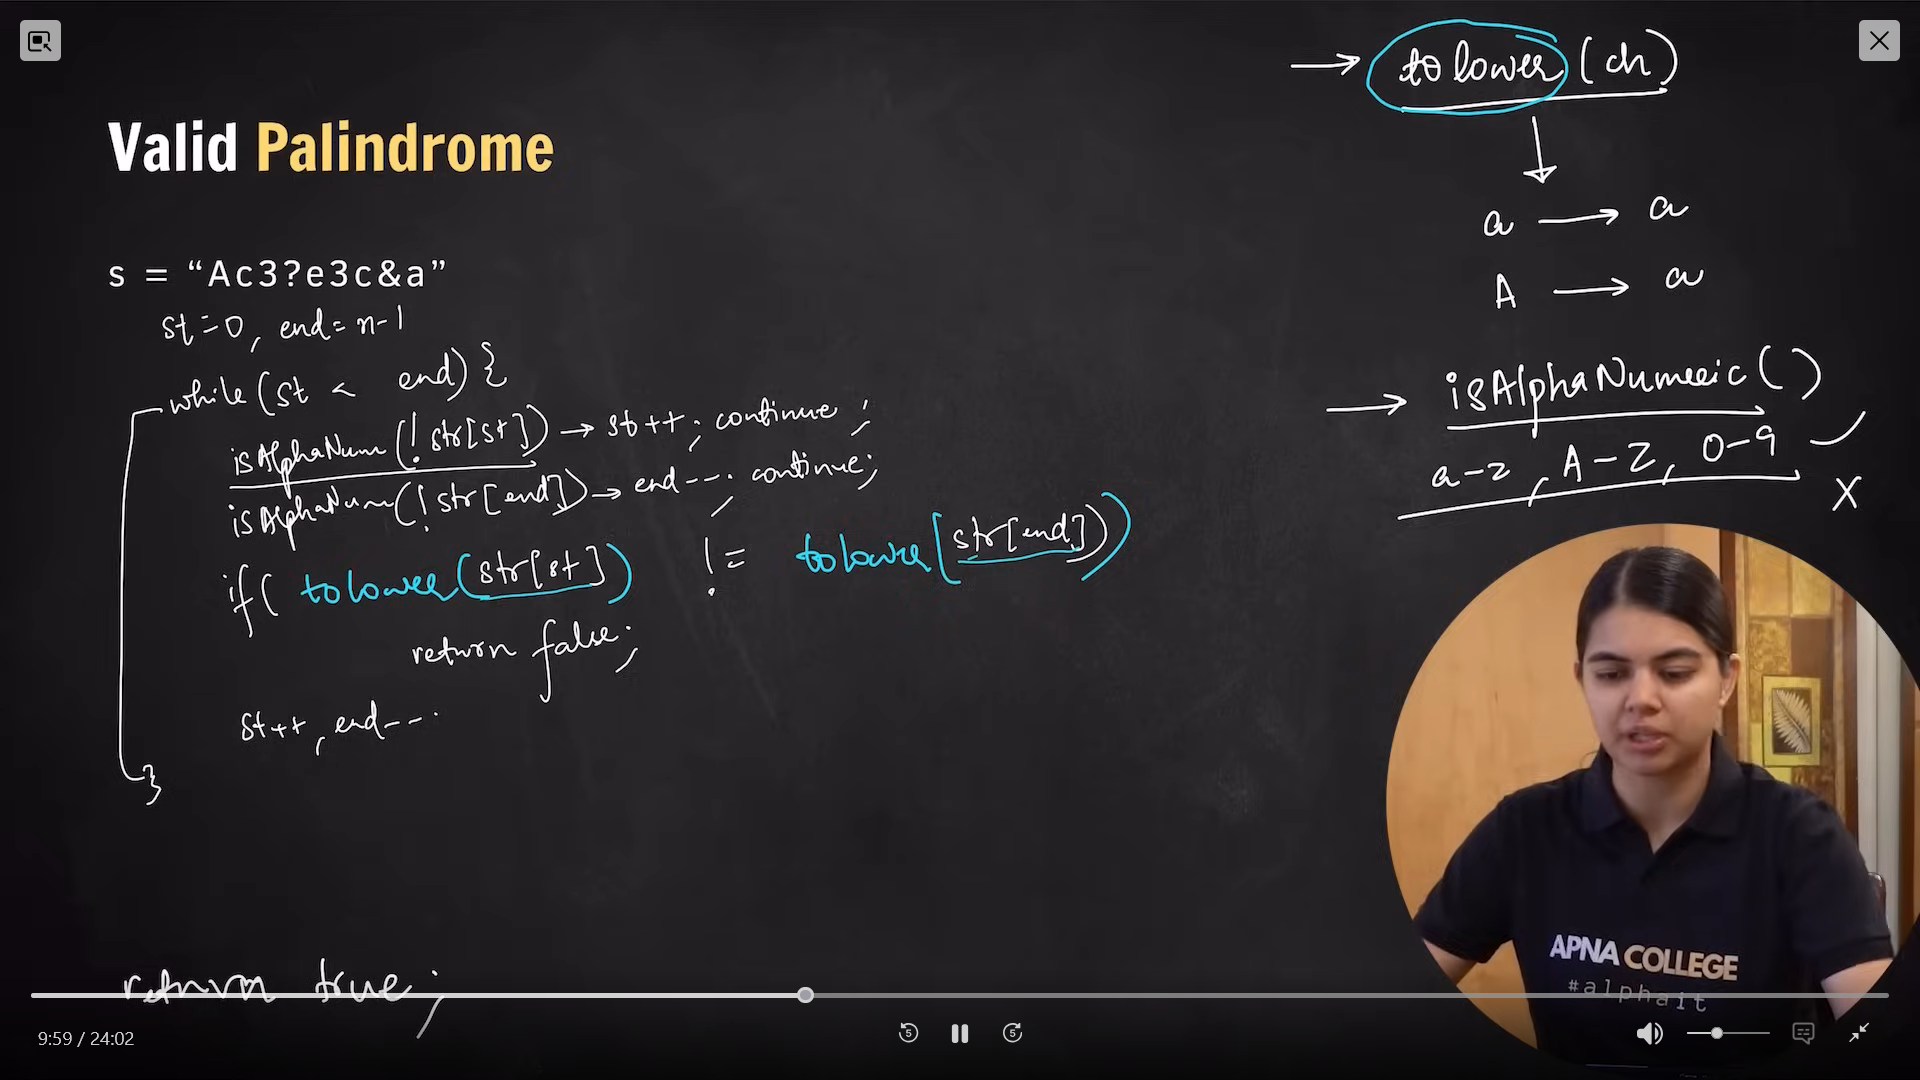 tolower (ch)
Valid Palindrome
a → a
A → a
s = “Ac3?e3c&a”
st=0, end= n-1
while (st < end) {
isAlphaNum (! str[st]) → st++; continue;
isAlphaNum (! str[end]) → end--; continue;
if( tolower (str[st]) != tolower (str[end]))
return false;
st++, end--.
}
return true;
→ isAlphaNumeric ()
a-z, A-Z, 0-9 ✓
X
APNA COLLEGE
#alphait
9:59 / 24:02
5
5